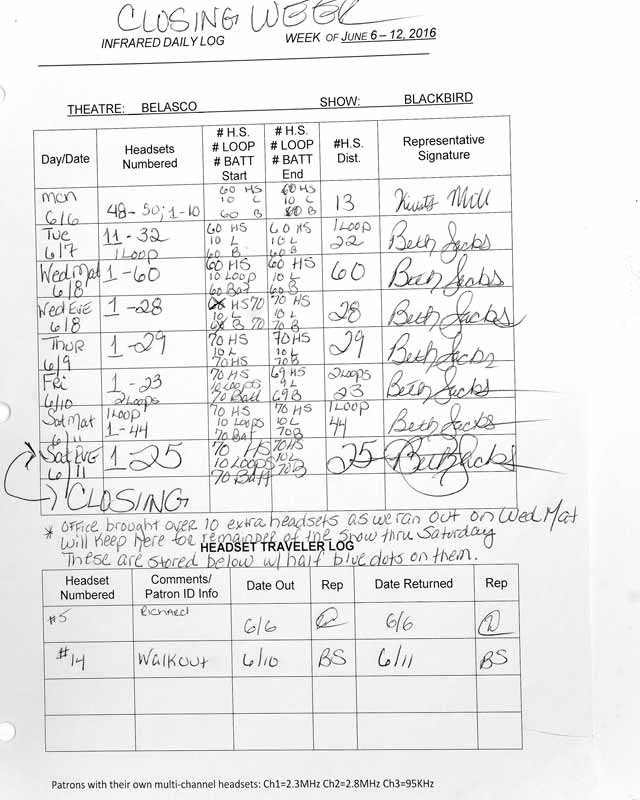 CLOSING WEEK
INFRARED DAILY LOG WEEK OF JUNE 6 – 12, 2016
THEATRE: BELASCO SHOW: BLACKBIRD
Day/Date Headsets Numbered # H.S. # LOOP # BATT Start # H.S. # LOOP # BATT End #H.S. Dist. Representative Signature
Mon 6/6 48-50; 1-10 60 HS 10 L 60 B 60 HS 10 L 60 B 13
Tue 6/7 11-32 1 Loop 60 HS 10 L 60 B 60 HS 10 L 60 B 1 Loop 22 Beth Jacks
Wed Mat 6/8 1-60 60 HS 10 Loop 60 Batt 60 HS 10 L 60 B 60 Beth Jacks
Wed Eve 6/8 1-28 HS 70 10 L B 70 70 HS 10 L 70 B 28 Beth Jacks
Thur 6/9 1-29 70 HS 10 L 70 HS 70 HS 10 L 70 B 29 Beth Jacks
Fri 6/10 1-23 2 Loops 70 HS 10 Loops 70 Batt 69 HS 9 L 70 B 2 Loops 23 Beth Jacks
Sat Mat 6/11 1 Loop 1-44 70 HS 10 Loops 70 Bat 70 HS 10 L 70 B 1 Loop 44 Beth Jacks
Sat Eve 6/11 1-25 70 HS 10 Loops 70 Batt 70 HS 10 L 70 B 25 Beth Jacks
CLOSING
* Office brought over 10 extra headsets as we ran out on Wed Mat
will keep here for remainder of the show thru Saturday
HEADSET TRAVELER LOG
These are stored below w/ half blue dots on them.
Headset Numbered Comments/ Patron ID Info Date Out Rep Date Returned Rep
#5 Richard 6/6 6/6
#14 Walkout 6/10 BS 6/11 BS
Patrons with their own multi-channel headsets: Ch1=2.3MHz Ch2=2.8MHz Ch3=95KHz